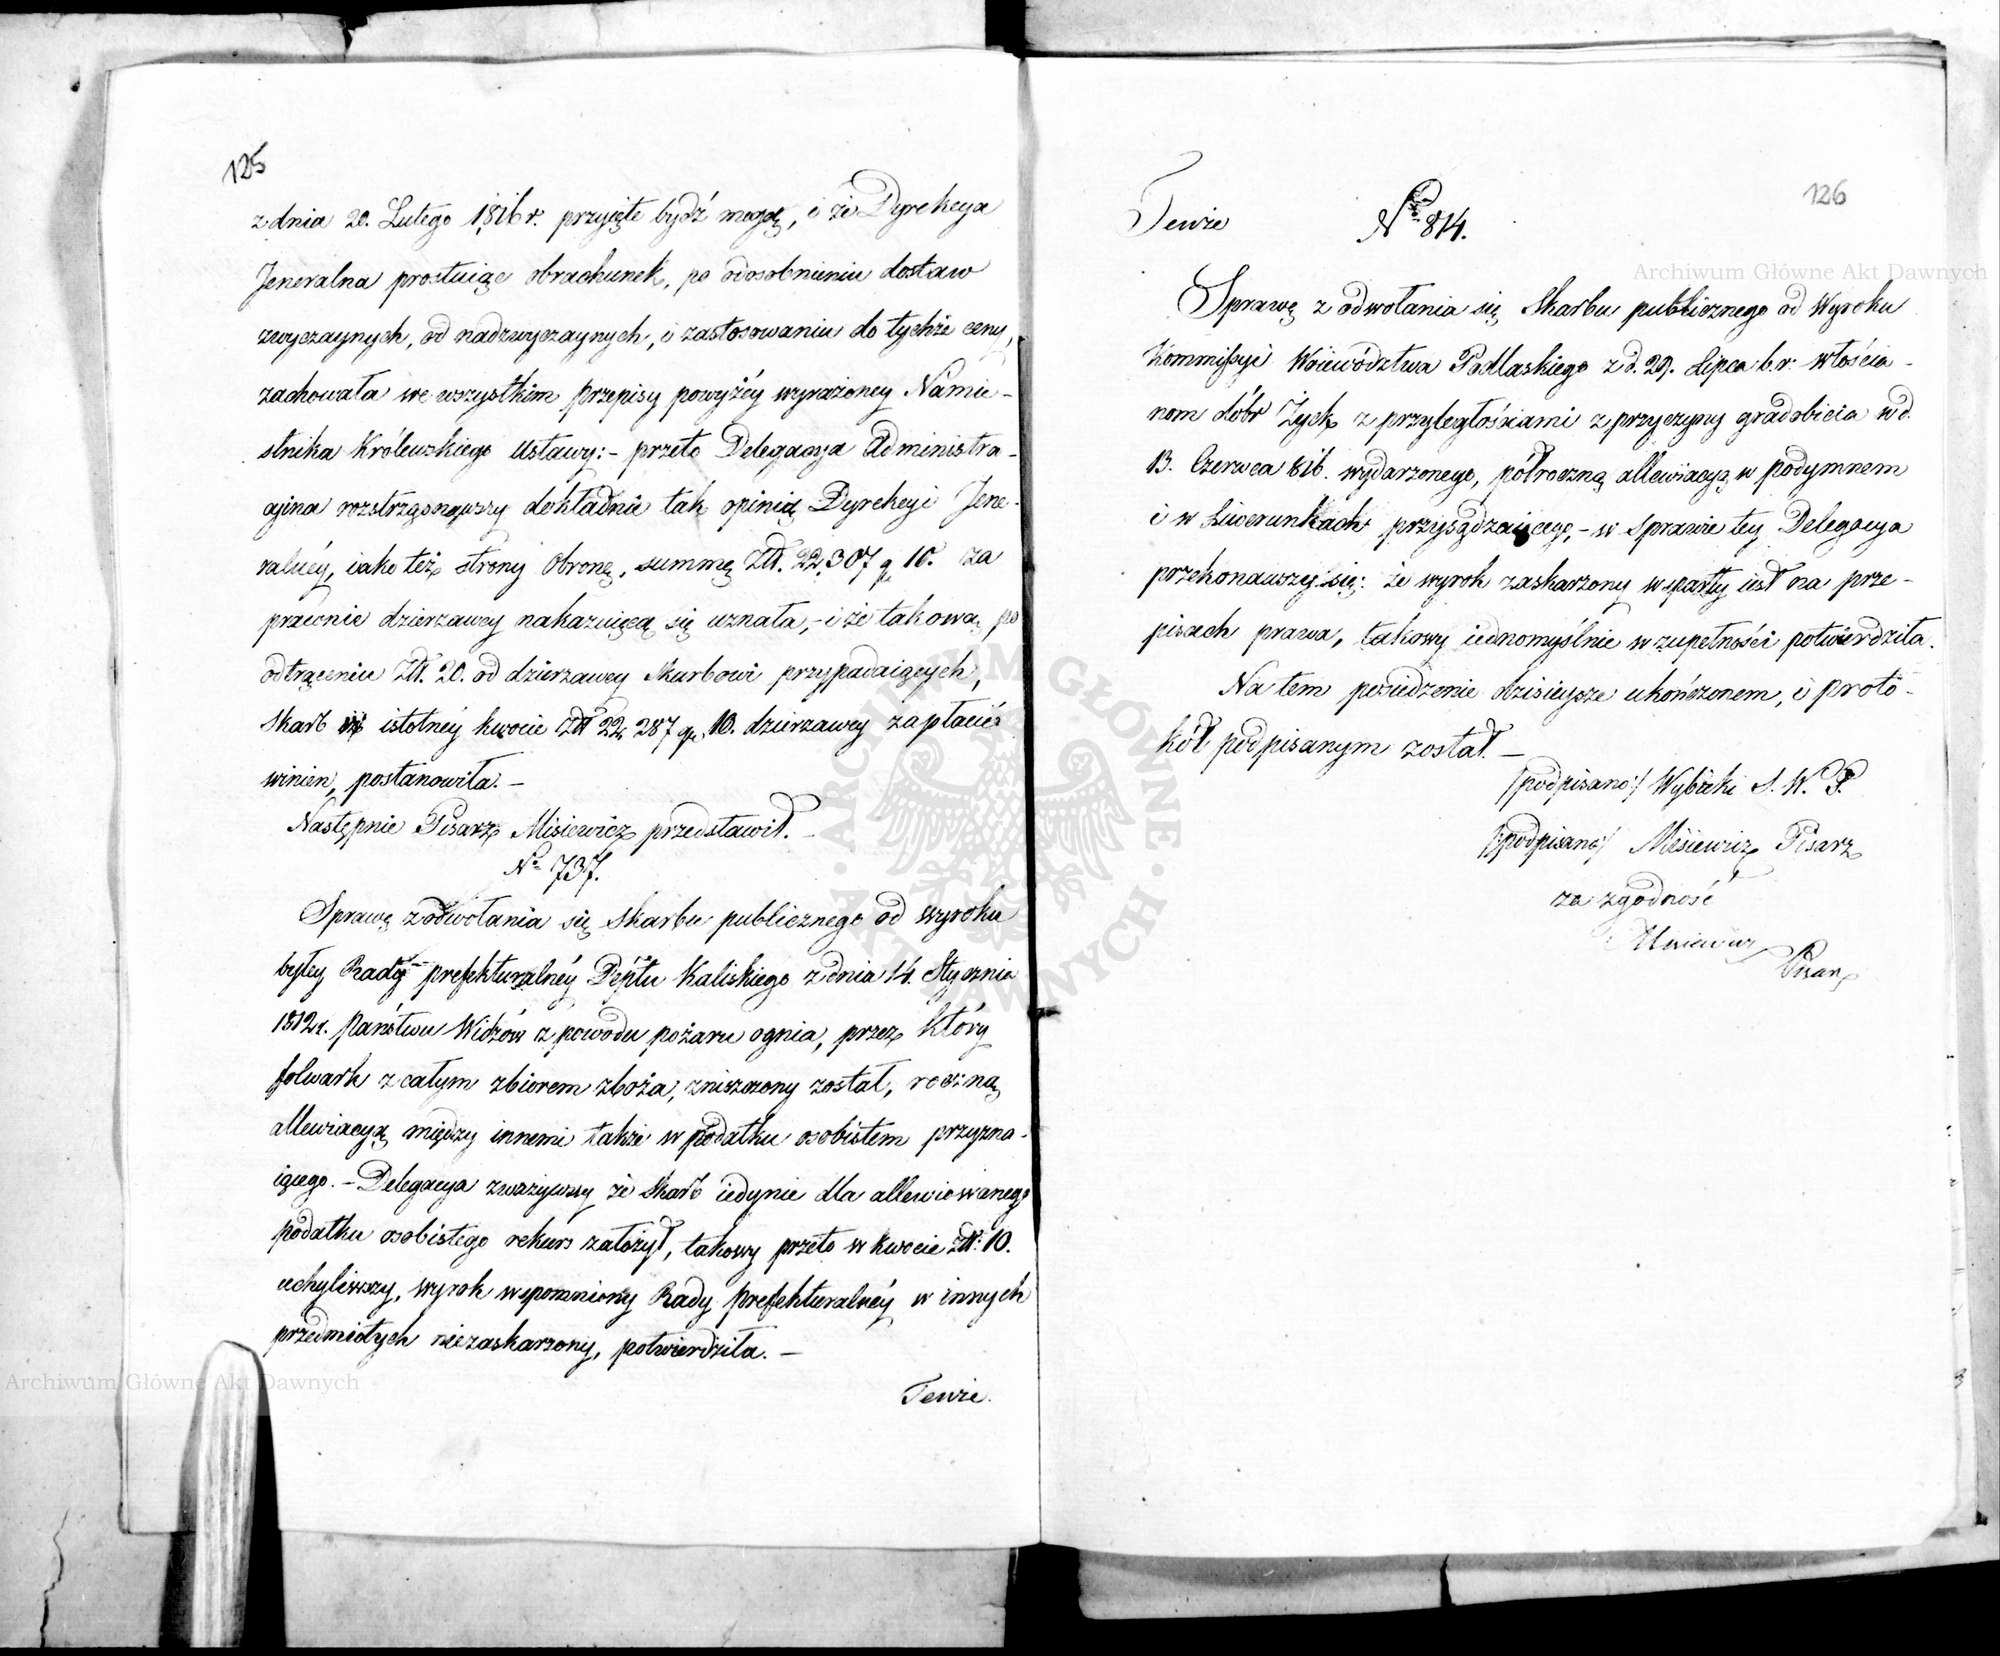 125
z dnia 20. Lutego 1816 r. przyięte bydź mogą, i że Dyrekcya
Jeneralna prostuiąc obrachunek, po odosobnieniu dostaw
zwyczaynych, od nadzwyczaynych, i zastosowaniu do tychże ceny,
zachowała we wszystkim przepisy powyżéy wyrażoney Namie-
stnika Królewskiego Ustawy:- przeto Delegacya Administra-
cyina rozstrząsnąwszy dokładnie tak opinią Dyrekcyi Jene-
ralnéy, iako też strony Obronę, summę Złł. 22,307 gr 10. za
prawnie dzierzawcy nakazuiącą się uznała,- i że takową, po
odtrąceniu Złł. 20. od dzierzawcy Skarbowi przypadaiących,
Skarb w istotnéy kwocie Złł 22,287 gr. 10. dzierzawcy zapłacić
winien, postanowiła.-
Następnie Pisarz Misiewicz przedstawił.-
No 737.
Sprawę z odwołania się Skarbu publicznego od wyroku
byłey Rady prefekturalnéy Deptu Kaliskiego z dnia 14. Stycznia
1812 r. Państwu Widzów z powodu pożaru ognia, przez który
folwark z całym zbiorem zboża, zniszczony został, roczną
allewiacyą między innemi także w podatku osobistem przyzna-
iącego.- Delegacya zważywszy że Skarb iedynie dla allewiowanego
podatku osobistego rekurs założył, takowy przeto w kwocie złł: 10.
uchyliwszy, wyrok wspomniony Rady prefekturalnéy w innych
przedmiotych niezaskarzony, potwierdziła.-
Tenże.
126
Tenże No 814.
Sprawę z odwołania się Skarbu publicznego od Wyroku
Kommissyi Woiewództwa Podlaskiego z d. 29. Lipca b. r. włościa-
nom dóbr Zyck z przyległościami z przyczyny gradobicia w d.
13. Czerwca 816. wydarzonego, półroczną allewiacyą w podymnem
i w Liwerunkach przysądzaiącego,- w Sprawie tey Delegacya
przekonawszy się: że wyrok zaskarzony wsparty iest na prze-
pisach prawa, takowy iednomyślnie w zupełności potwierdziła.
Na tem posiedzenie dzisieysze ukończonem, i proto-
kół podpisanym został.-
/podpisano:/ Wybicki S. W. P.
/:podpisano:/ Misiewicz Pisarz
za zgodność
Misiewicz
Pisarz
Archiwum Główne Akt Dawnych
Archiwum Główne Akt Dawnych
ARCHIWUM GŁÓWNE AKT DAWNYCH